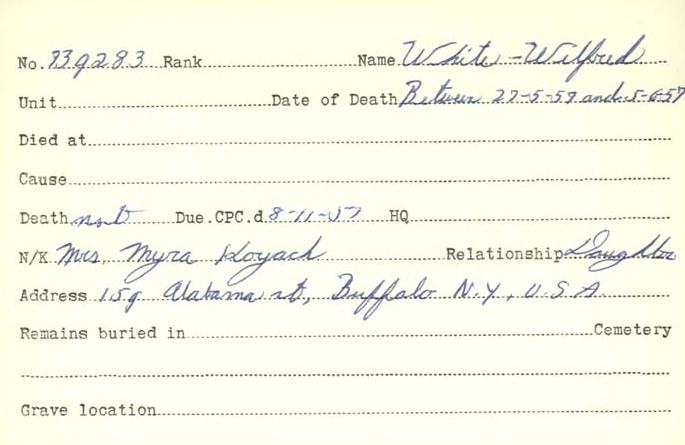 No. 739283 Rank Name White - Wilfred
Unit Date of Death Between 27-5-57 and 5-6-57
Died at
Cause
Death not Due.CPC.d 8-11-57 HQ
N/K Mrs, Myra Relationship Daughter
Address 159 Alabama st, Buffalo N.Y, U.S.A
Remains buried in Cemetery
Grave location